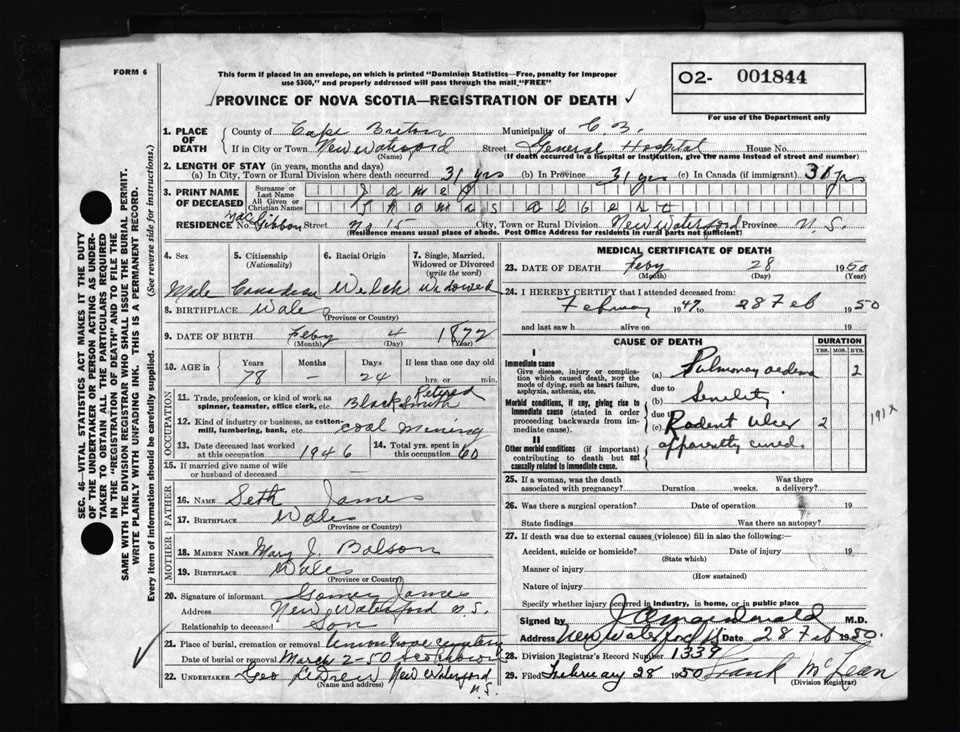 FORM 6
This form if placed in an envelope, on which is printed "Dominion Statistics—Free, penalty for improper
use $300," and properly addressed will pass through the mail "FREE"
PROVINCE OF NOVA SCOTIA—REGISTRATION OF DEATH ✓
O2- 001844
For use of the Department only
1. PLACE OF DEATH { County of Cape Breton Municipality of C B.
If in City or Town New Waterford (Name) Street General Hospital House No.
(If death occurred in a hospital or institution, give the name instead of street and number)
2. LENGTH OF STAY (in years, months and days)
(a) In City, Town or Rural Division where death occurred 31 yrs (b) In Province 31 yrs (c) In Canada (if immigrant) 38 yrs
3. PRINT NAME OF DECEASED { Surname or Last Name James
All Given or Christian Names Thomas Albert
RESIDENCE No. MacGibbon Street No 15 City, Town or Rural Division New Waterford Province N. S.
(Residence means usual place of abode. Post Office Address for residents in rural parts not sufficient)
4. Sex
Male
5. Citizenship (Nationality)
Canadian
6. Racial Origin
Welch
7. Single, Married, Widowed or Divorced (write the word)
Widowed
8. BIRTHPLACE Wales
(Province or Country)
9. DATE OF BIRTH Feby 4 1872
(Month) (Day) (Year)
10. AGE in { Years Months Days If less than one day old
78 – 24 hrs. or min.
OCCUPATION
11. Trade, profession or kind of work as spinner, teamster, office clerk, etc. Retired Black Smith
12. Kind of industry or business, as cotton mill, lumbering, bank, etc. Coal Mening
13. Date deceased last worked at this occupation 1946
14. Total yrs. spent in this occupation 60
15. If married give name of wife or husband of deceased
FATHER
16. NAME Seth James
17. BIRTHPLACE Wales
(Province or Country)
MOTHER
18. MAIDEN NAME Mary J. Balson
19. BIRTHPLACE Wales
(Province or Country)
20. Signature of informant Gomer James
Address New Waterford N. S.
Relationship to deceased Son
21. Place of burial, cremation or removal Union Grove Cemetery
Date of burial or removal March 2-50
22. UNDERTAKER Geo LeDrew New Waterford N.S.
(Name and address)
MEDICAL CERTIFICATE OF DEATH
23. DATE OF DEATH Feby 28 1950
(Month) (Day) (Year)
24. I HEREBY CERTIFY that I attended deceased from:
February 1947 28 Feb 1950
and last saw h alive on 19
CAUSE OF DEATH
DURATION
YRS. MOS. DYS.
I
Immediate cause
Give disease, injury or complication which caused death, NOT the mode of dying, such as heart failure, asphyxia, asthenia, etc.
(a) Pulmonary oedema 2
due to
Morbid conditions, if any, giving rise to immediate cause (stated in order proceeding backwards from immediate cause).
(b) Senility
due to
(c) Rodent ulcer 2
apparently cured.
191x
II
Other morbid conditions (if important) contributing to death but not causally related to immediate cause.
25. If a woman, was the death associated with pregnancy? Duration weeks. Was there a delivery?
26. Was there a surgical operation? Date of operation 19
State findings Was there an autopsy?
27. If death was due to external causes (violence) fill in also the following:
Accident, suicide or homicide? Date of injury 19
(State which)
Manner of injury
(How sustained)
Nature of injury
Specify whether injury occurred in industry, in home, or in public place
Signed by M.D.
Address New Waterford NS Date 28 Feb 1950.
28. Division Registrar's Record Number 1339
29. Filed February 28 1950 Frank McLean
(Division Registrar)
SEC. 46—VITAL STATISTICS ACT MAKES IT THE DUTY
OF THE UNDERTAKER OR PERSON ACTING AS UNDER-
TAKER TO OBTAIN ALL THE PARTICULARS REQUIRED
IN THE "REGISTRATION OF DEATH" AND TO FILE THE
SAME WITH THE DIVISION REGISTRAR WHO SHALL ISSUE THE BURIAL PERMIT.
WRITE PLAINLY WITH UNFADING INK. THIS IS A PERMANENT RECORD.
Every item of information should be carefully supplied. (See reverse side for instructions.)